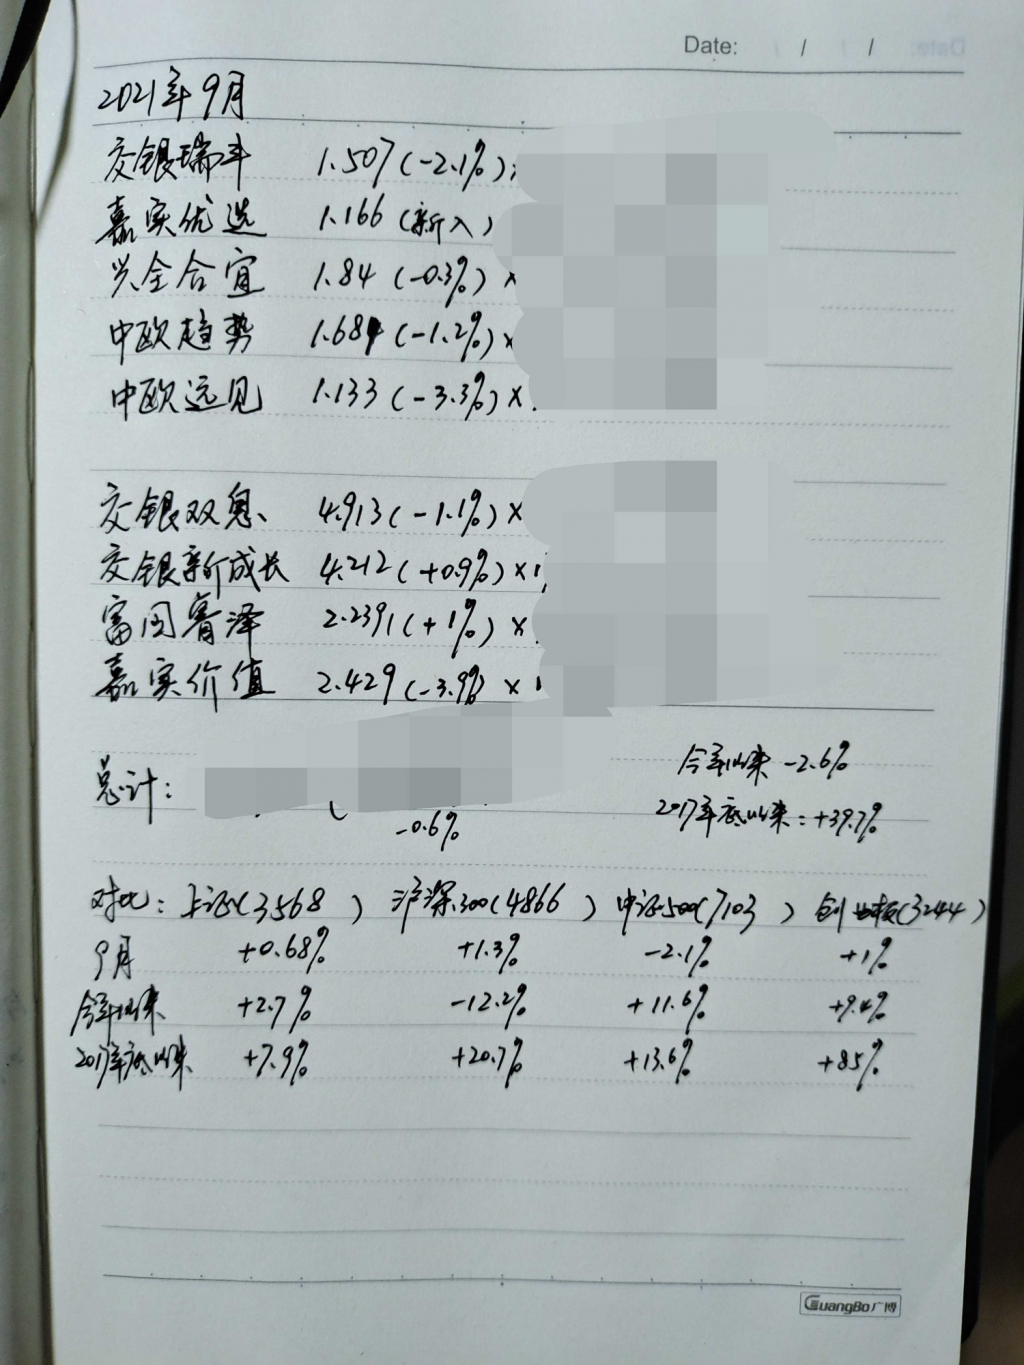 Date: / /
2021年9月
交银瑞丰 1.507(-2.1%)
嘉实优选 1.166(新入)
兴全合宜 1.84(-0.3%)×
中欧趋势 1.684(-1.2%)×
中欧远见 1.133(-3.3%)×
交银双息 4.913(-1.1%)×
交银新成长 4.212(+0.9%)×1
富国睿泽 2.2391(+1%)×
嘉实价值 2.429(-3.9%)×1
今年以来 -2.6%
总计: 2017年底以来:+39.7%
-0.6%
对比:上证(3568) 沪深300(4866) 中证500(7103) 创业板(3244)
9月 +0.68% +1.3% -2.1% +1%
今年以来 +2.7% -12.2% +11.6% +9.4%
2017年底以来 +7.9% +20.7% +13.6% +85%
GuangBo广博